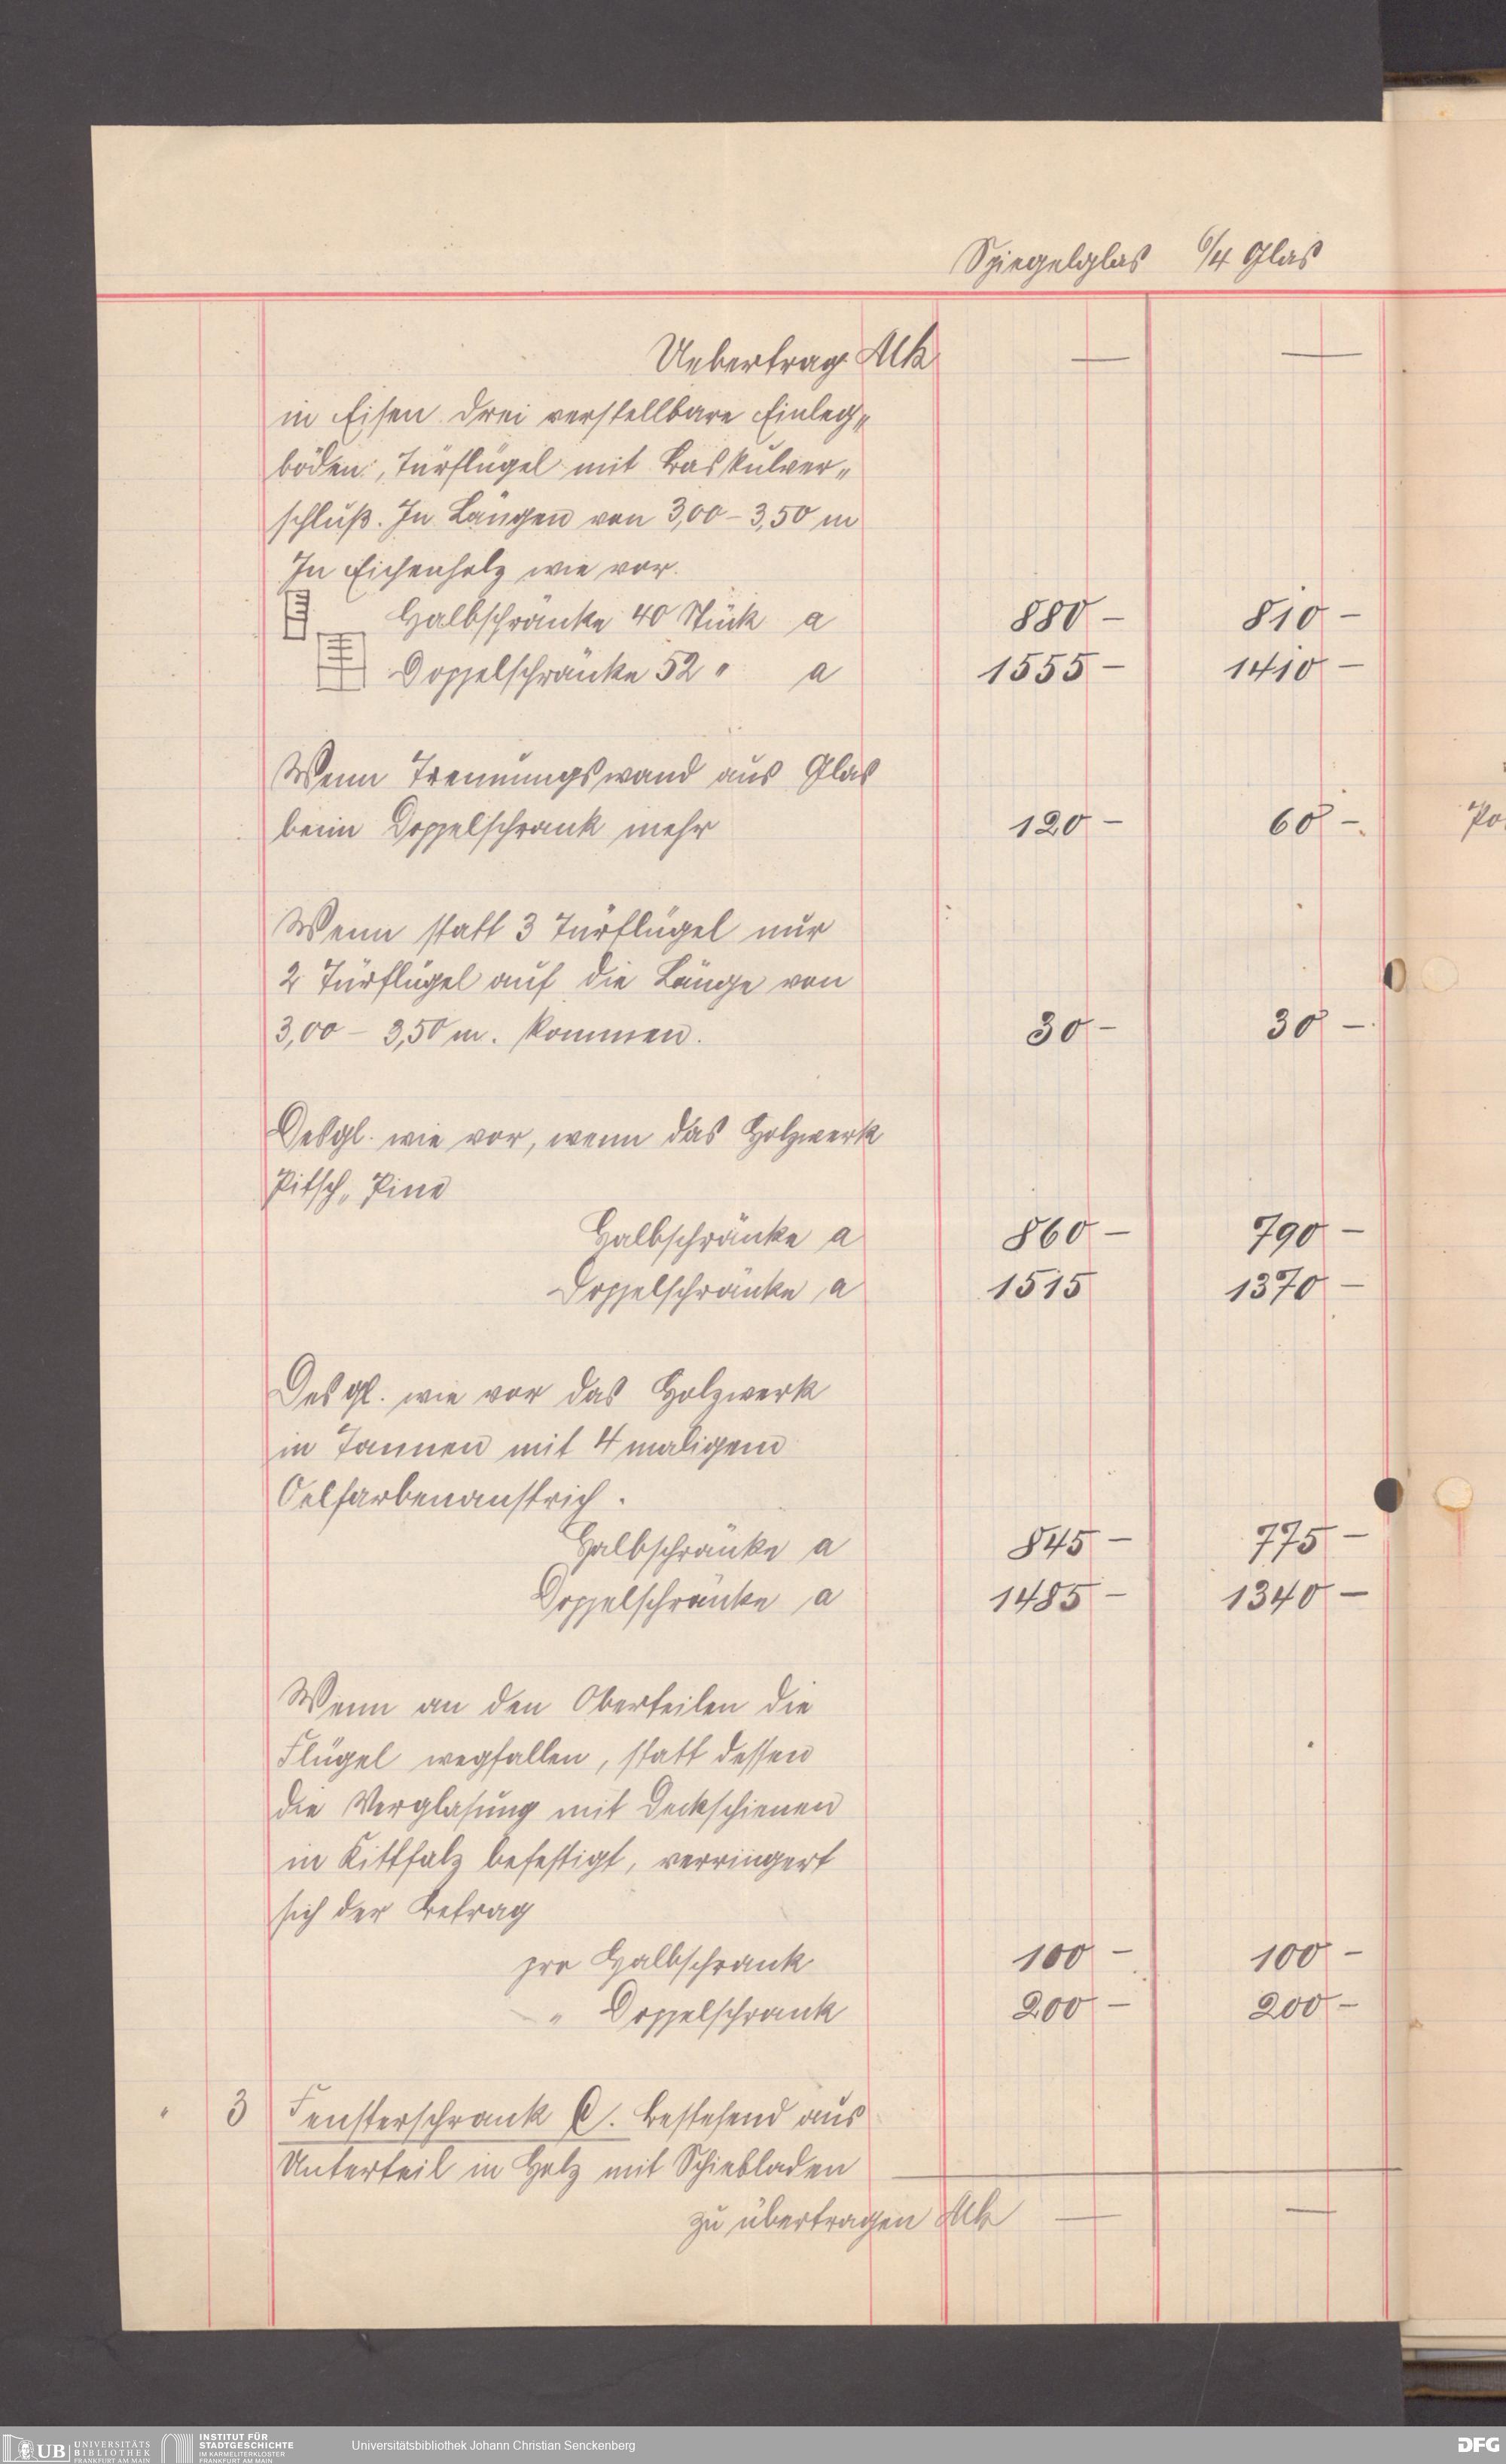 Spiegelglas 6/4 Glas
Uebertrag Mk — —
in Eisen drei verstellbare Einleg„
böden, Türflügel mit Baskülver„
schluß. In Längen von 3,00 – 3,50 m
In Eichenholz wie vor.
Halbschränke 40 Stück a 880 – 810 –
Doppelschränke 52 " a 1555 – 1410 –
Wenn Trennungswand aus Glas
beim Doppelschrank mehr 120 – 60 –
Wenn statt 3 Türflügel nur
2 Türflügel auf die Länge von
3,00 – 3,50 m. kommen. 30 – 30 –
Desgl. wie vor, wenn das Holzwerk
Pitsch„ Pine
Halbschränke a 860 – 790 –
Doppelschränke a 1515 1370 –
Desgl. wie vor das Holzwerk
in Tannen mit 4 maligem
Oelfarbenanstrich.
Halbschränke a 845 – 775 –
Doppelschränke a 1485 – 1340 –
Wenn an den Oberteilen die
Flügel wegfallen, statt dessen
die Verglasung mit Deckschienen
in Kittfalz befestigt, verringert
sich der Betrag
pro Halbschrank 100 – 100 –
" Doppelschrank 200 – 200 –
" 3 Fensterschrank C. bestehend aus
Unterteil in Holz mit Schiebladen
zu übertragen Mk — —
Po
UB UNIVERSITÄTS
BIBLIOTHEK
FRANKFURT AM MAIN
INSTITUT FÜR
STADTGESCHICHTE
IM KARMELITERKLOSTER
FRANKFURT AM MAIN
Universitätsbibliothek Johann Christian Senckenberg
DFG